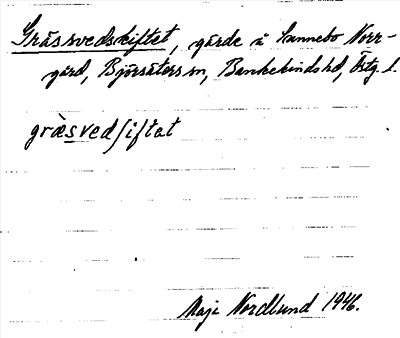 Grässvedskiftet, gärde å Sannebo Norr-
gård, Björsäters sn, Bankekinds hd, Östg. l.
gräsvedʃiftat
Maji Nordlund 1946.